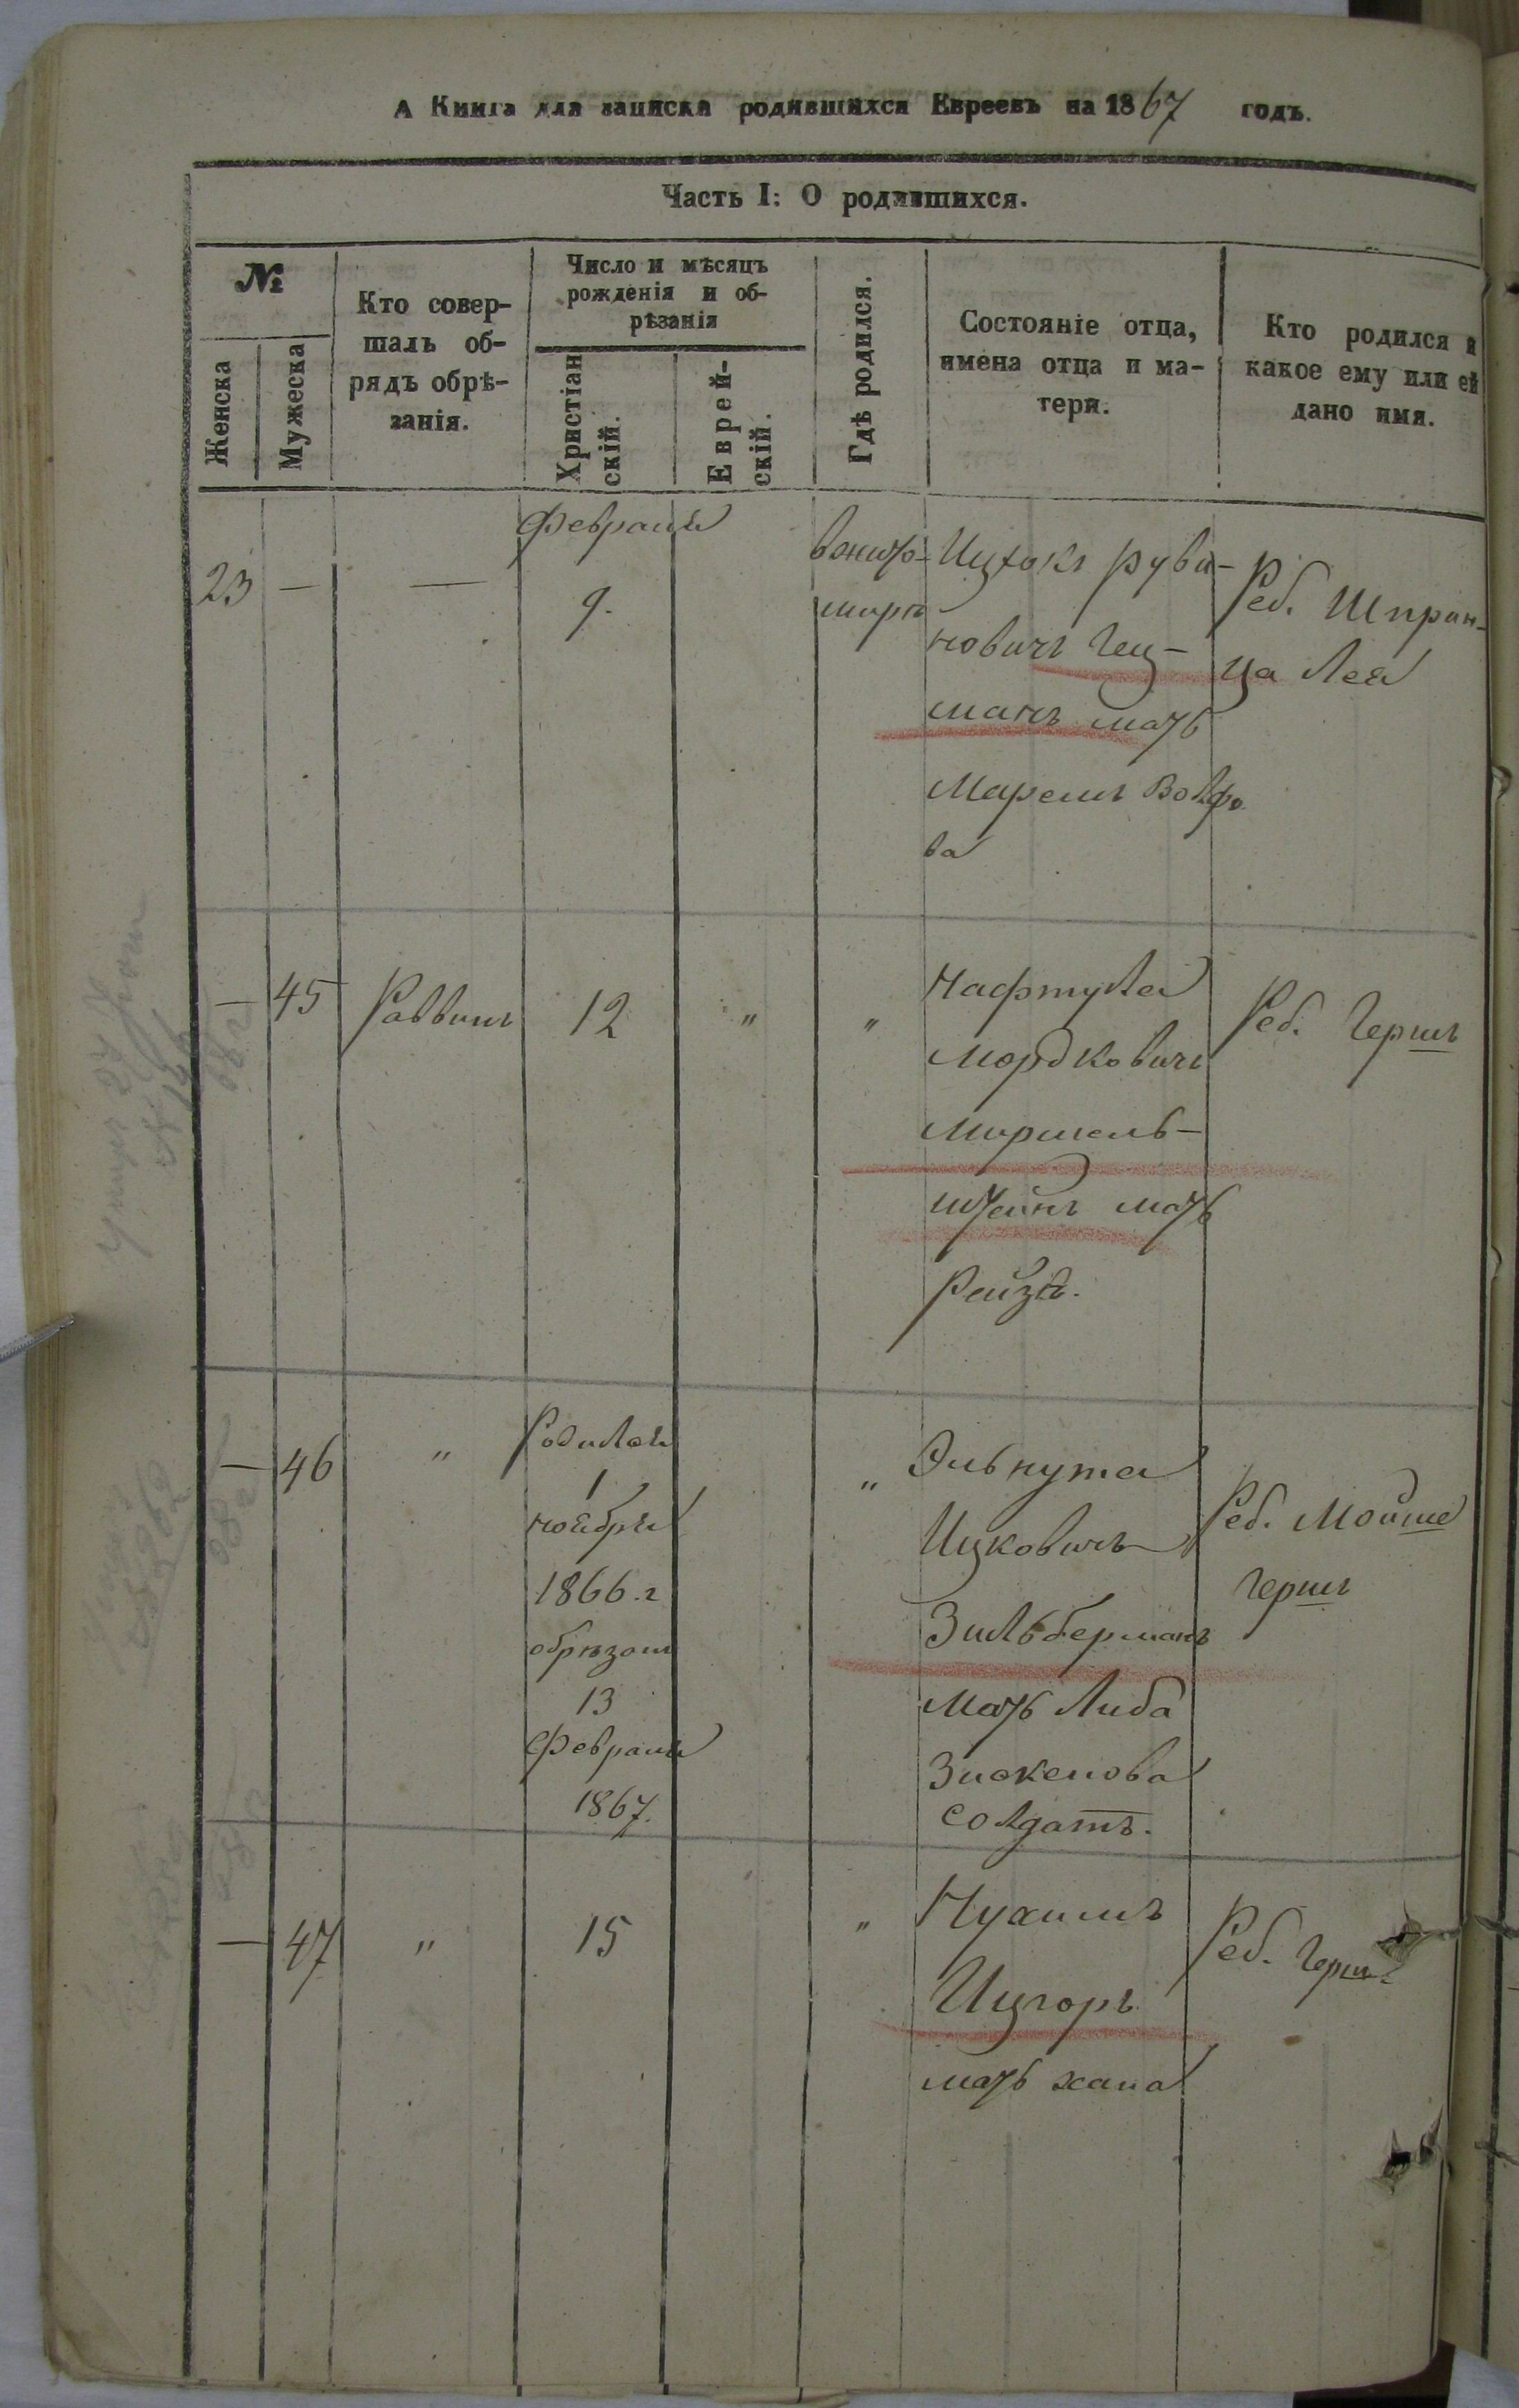 А Книга для записки родившихся Евреевъ на 1867 годъ.
Часть I: О родившихся.
№
Женска
Мужеска
Кто совер-
шалъ об-
рядъ обрѣ-
занія.
Число и мѣсяцъ
рожденія и об-
рѣзанія
Христіан
скій.
Еврей-
скій.
Гдѣ родился.
Состояніе отца,
имена отца и ма-
тери.
Кто родился и
какое ему или ей
дано имя.
23 — —
Февраля
9.
в Жито-
мирѣ
Ицхокъ Руви-
новичъ Гец-
манъ мать
Вольфо
ва
Реб. Шприн-
ца Лея
— 45
Раввинъ
12
"
"
Нафтула
Мордковичъ
Миршель-
штейнъ мать
Рейза.
Реб. Герш
— 46
"
Родился
1
ноября
1866 г
обрѣзанъ
13
Февраля
1867.
"
Элькуна
Ицковичъ
Зильберманъ
мать Либа
солдатъ.
Реб. Мойше
Герш
— 47
"
15
"
Нухимъ
мать Хана
Реб. Герш